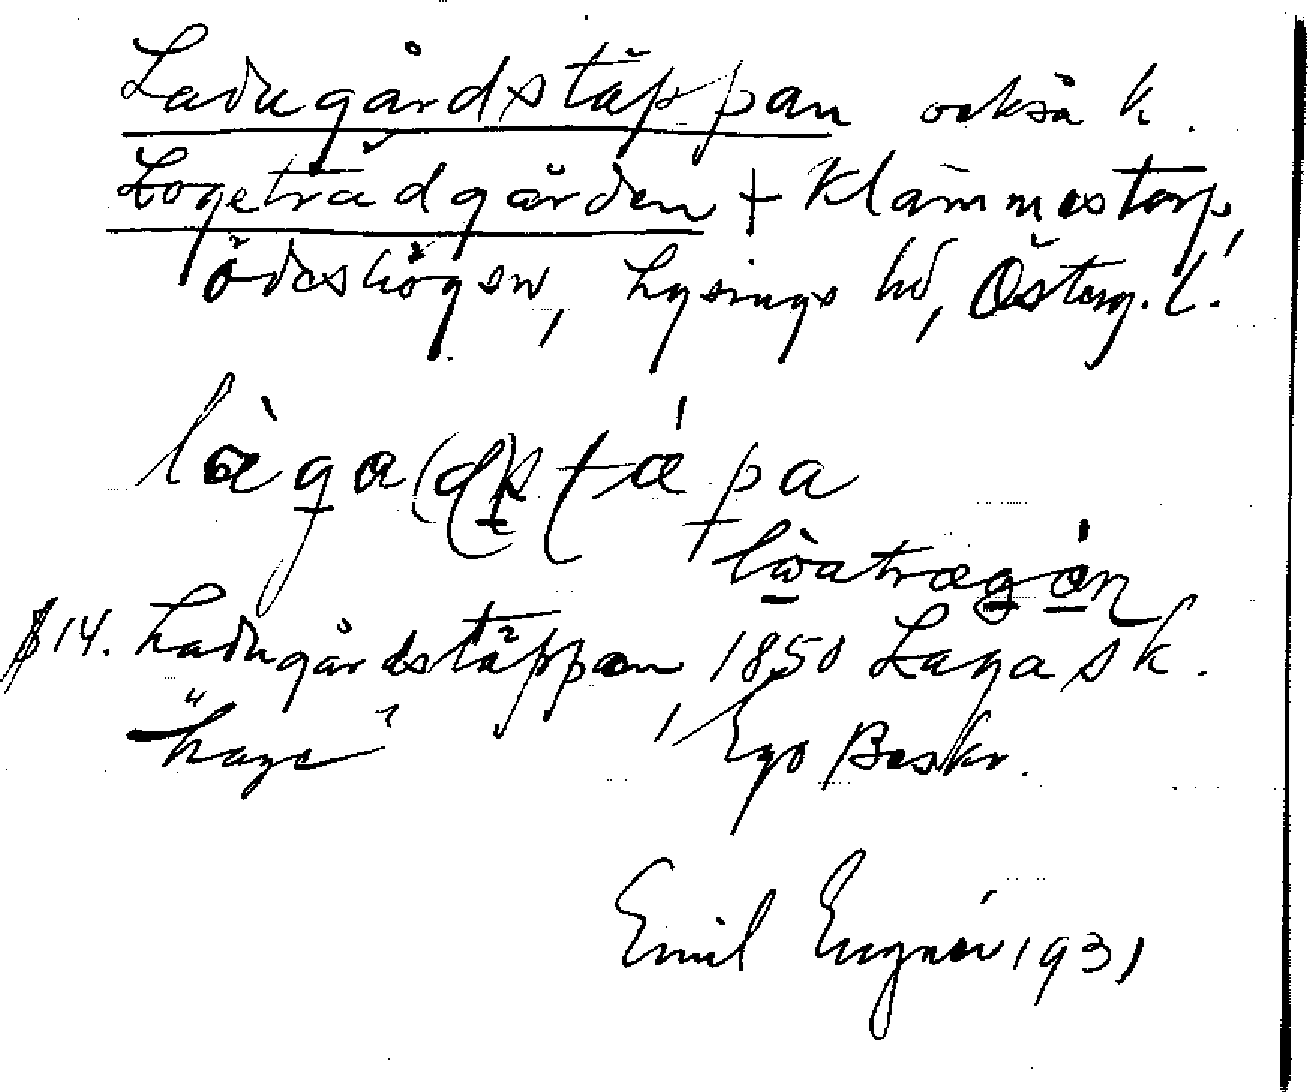 Ladugårdstäppan också k.
Logeträdgården + Klämmestorp,
Ödeshögsn, Lysings hd, Österg. l.
làga(d)stápa
lòatrægán
§14. Ladugårdstäppan, 1850 Laga sk.
"hage" Ego Beskr.
Emil 1931